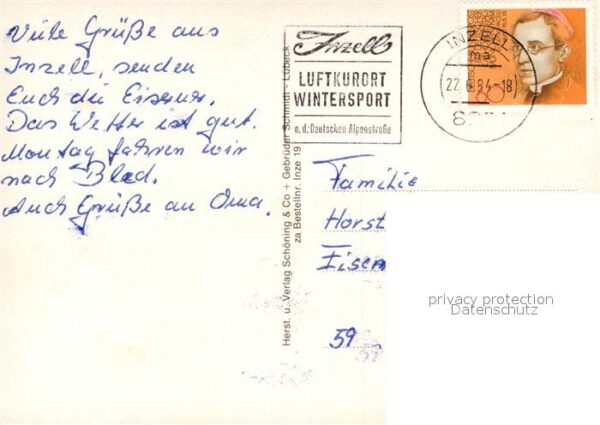 Viele Grüße aus
Inzell, senden
Euch die Eisener.
Das Wetter ist gut.
Montag fahren wir
nach Bled.
Auch Grüße an Oma.
Herst. u. Verlag Schöning & Co + Gebrüder Schmidt - Lübeck
za Bestellnr. Inze 19
Inzell
LUFTKURORT
WINTERSPORT
a. d. Deutschen Alpenstraße
INZELL
22. 84-18
60
Familie
Horst
Eisen
59
privacy protection
Datenschutz